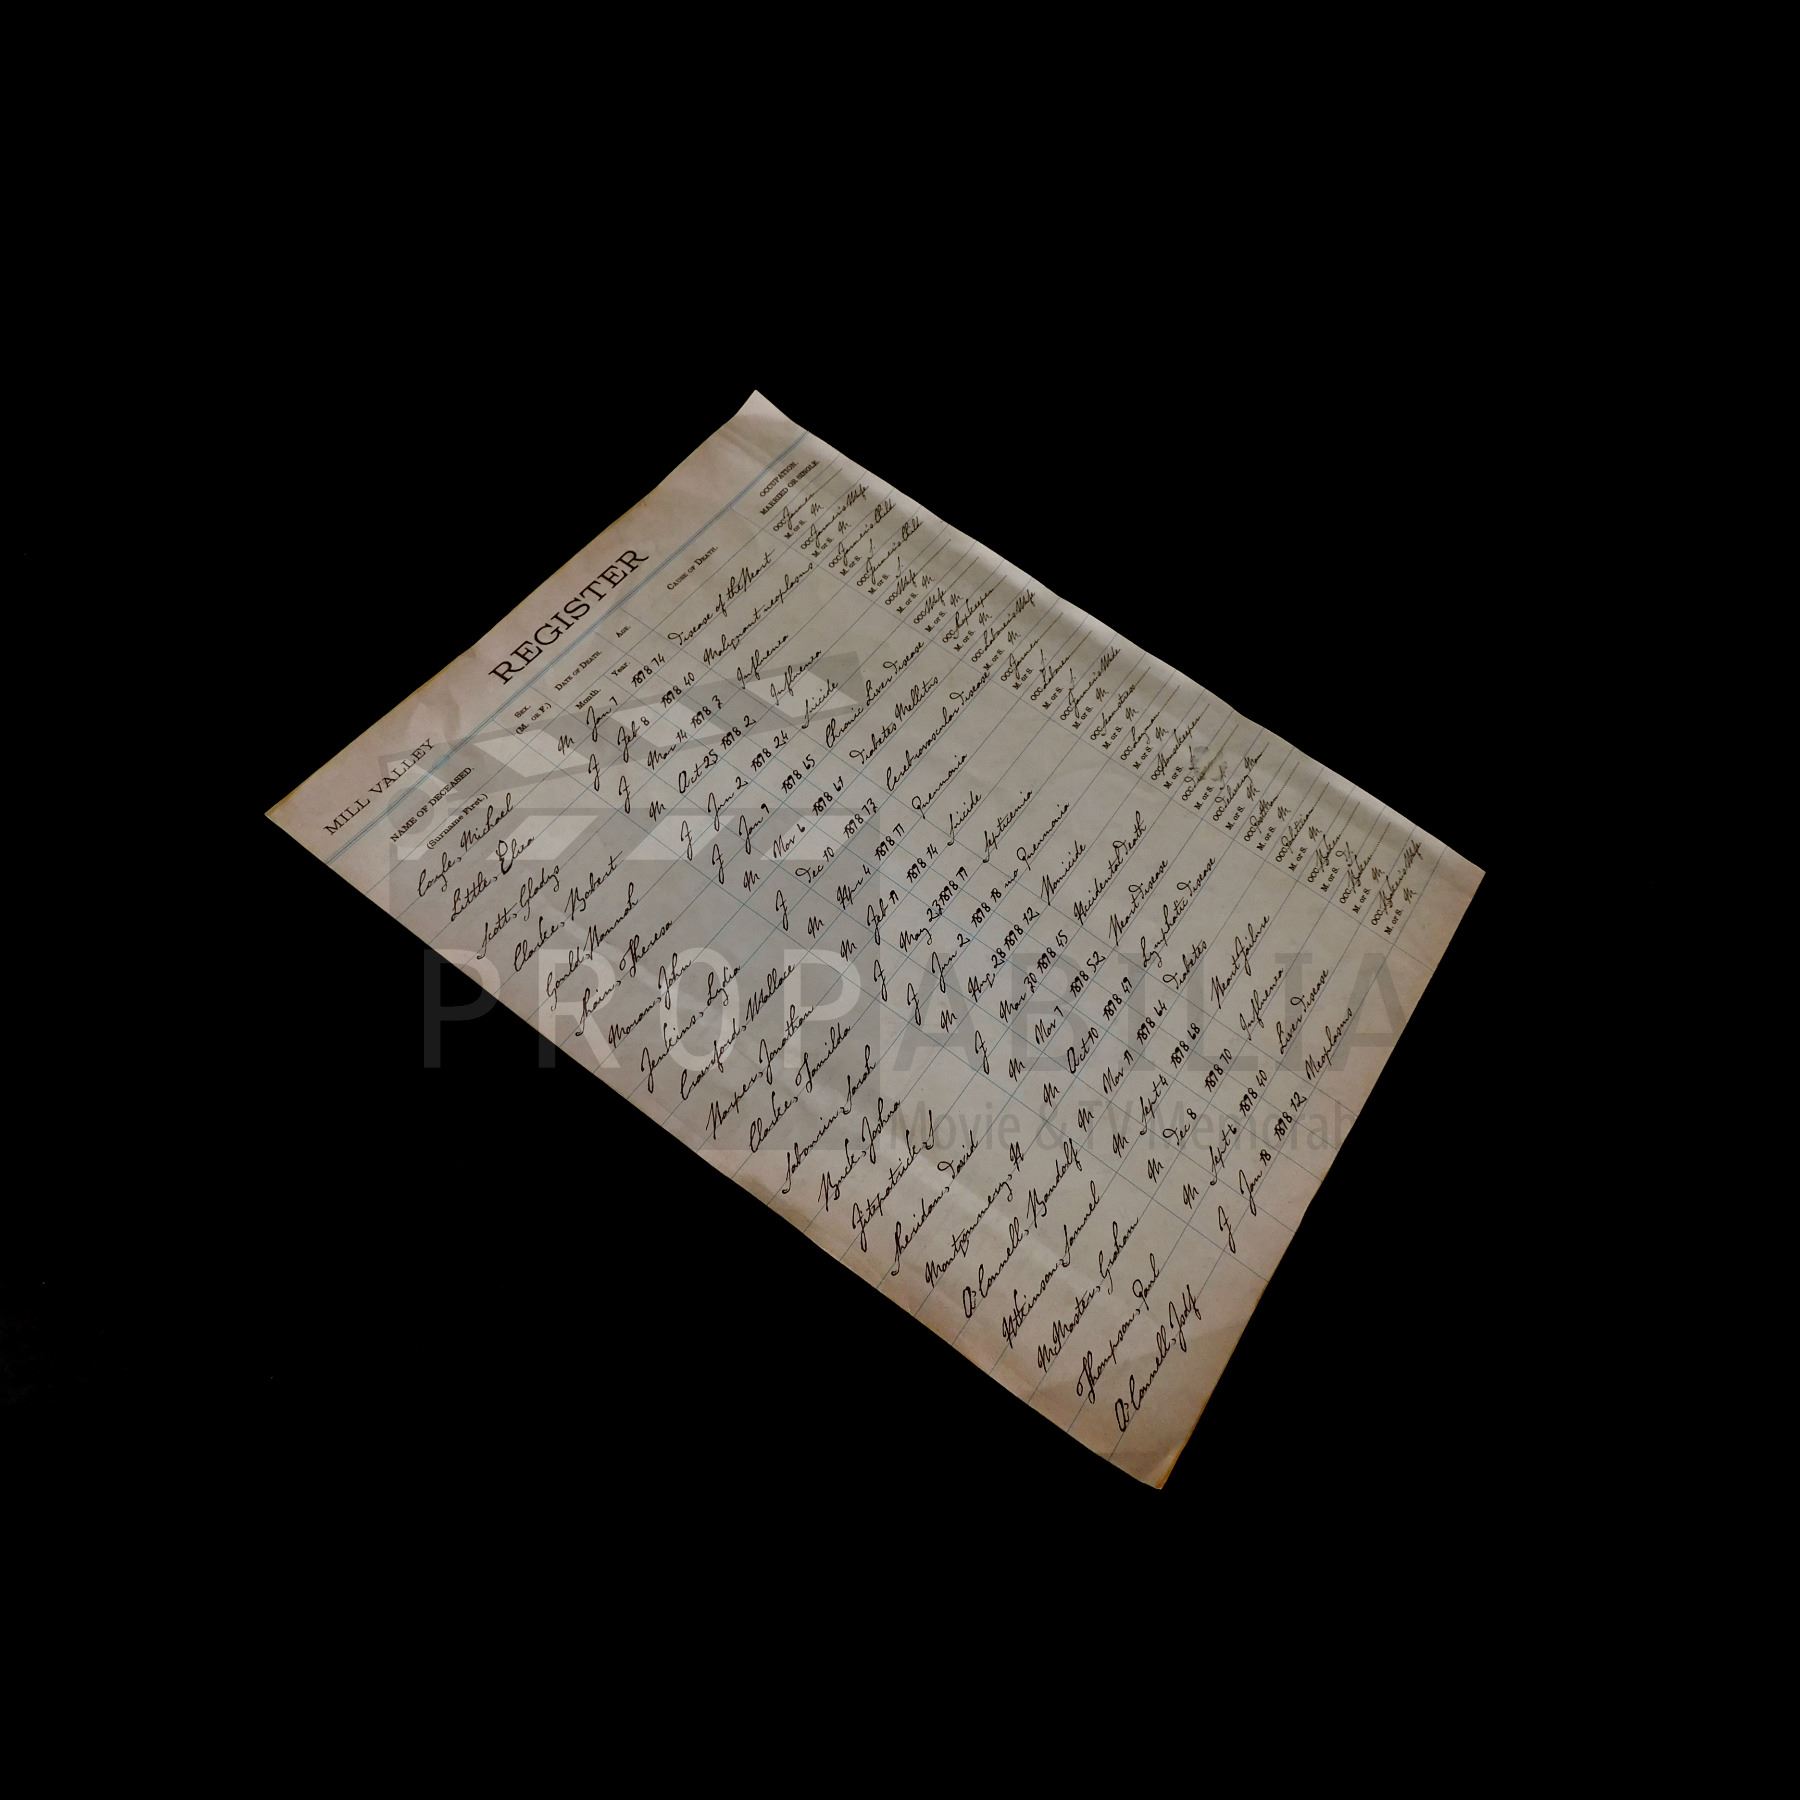 MILL VALLEY REGISTER
NAME OF DECEASED. (Surname First.) SEX. (M. or F.) DATE OF DEATH. Month. Year. AGE. CAUSE OF DEATH. OCCUPATION. MARRIED OR SINGLE.
Coyle, Michael M Jan 7 1898 74 Disease of the Heart OCC. Farmer M. or S. M
Little, Eliza F Feb 8 1898 40 Malignant neoplasms OCC. Farmer's Wife M. or S. M
Scott, Gladys F Mar 14 1898 3 Influenza OCC. Farmer's Child M. or S. S
Clarke, Robert M Oct 25 1898 2 Influenza OCC. Farmer's Child M. or S. S
Gould, Hannah F Jun 2 1898 24 Suicide OCC. Wife M. or S. M
Shain, Theresa F Jan 9 1898 65 Chronic Liver Disease OCC. Wife M. or S. M
Moran, John M Mar 6 1898 61 Diabetes Mellitus OCC. Shopkeeper M. or S. M
Jenkins, Lydia F Dec 10 1898 73 Cerebrovascular disease OCC. Labourer's Wife M. or S. M
Crawford, Wallace M Apr 4 1898 71 Pneumonia OCC. Farmer M. or S. S
Harper, Jonathan M Feb 11 1898 74 Suicide OCC. Labourer M. or S. S
Clarke, Tamilda F May 23 1898 19 Septicemia OCC. Farmer's Wife M. or S. M
Sabourin, Sarah F Jun 2 1898 18 mo Pneumonia OCC. Seamstress M. or S. M
Buck, Joshua M Aug 28 1898 12 Homicide OCC. Layman M. or S. M
Fitzpatrick, S F Mar 30 1898 45 Accidental Death OCC. Housekeeper M. or S.
Sheridan, David M Nov 7 1898 52 Heart disease OCC. M. or S.
Montgommery, H M Oct 10 1898 49 Lymphatic disease OCC. Delivery Man M. or S. M
O'Connell, Bandolf M Mar 11 1898 64 Diabetes OCC. Postman M. or S. M
Atkinson, Samuel M Sept 4 1898 68 Heart failure OCC. Politician M. or S. M
McMaster, Graham M Dec 8 1898 70 Influenza OCC. Baker M. or S. S
Thompson, Paul M Sept 6 1898 40 Liver Disease OCC. Baker M. or S. M
O'Connell, F Jan 18 1898 12 Neoplasms OCC. Baker's Wife M. or S. M
PROPABILIA
Movie & TV Memorab